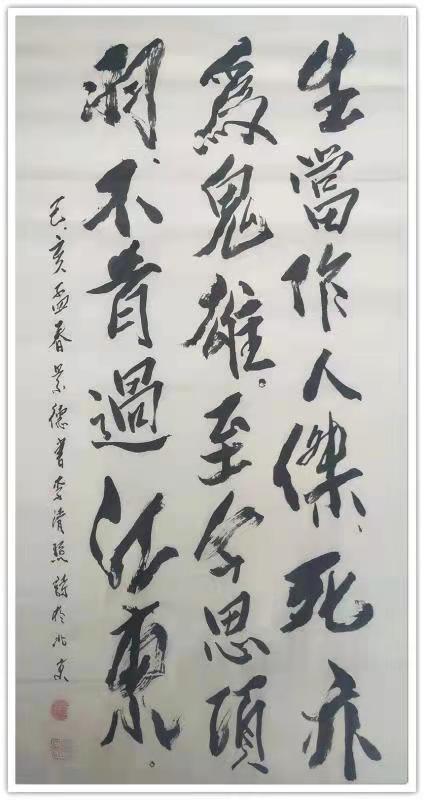 生當作人傑、死亦
為鬼雄。至今思項
羽、不肯過江東。
己亥孟春景德書李清照詩於北京